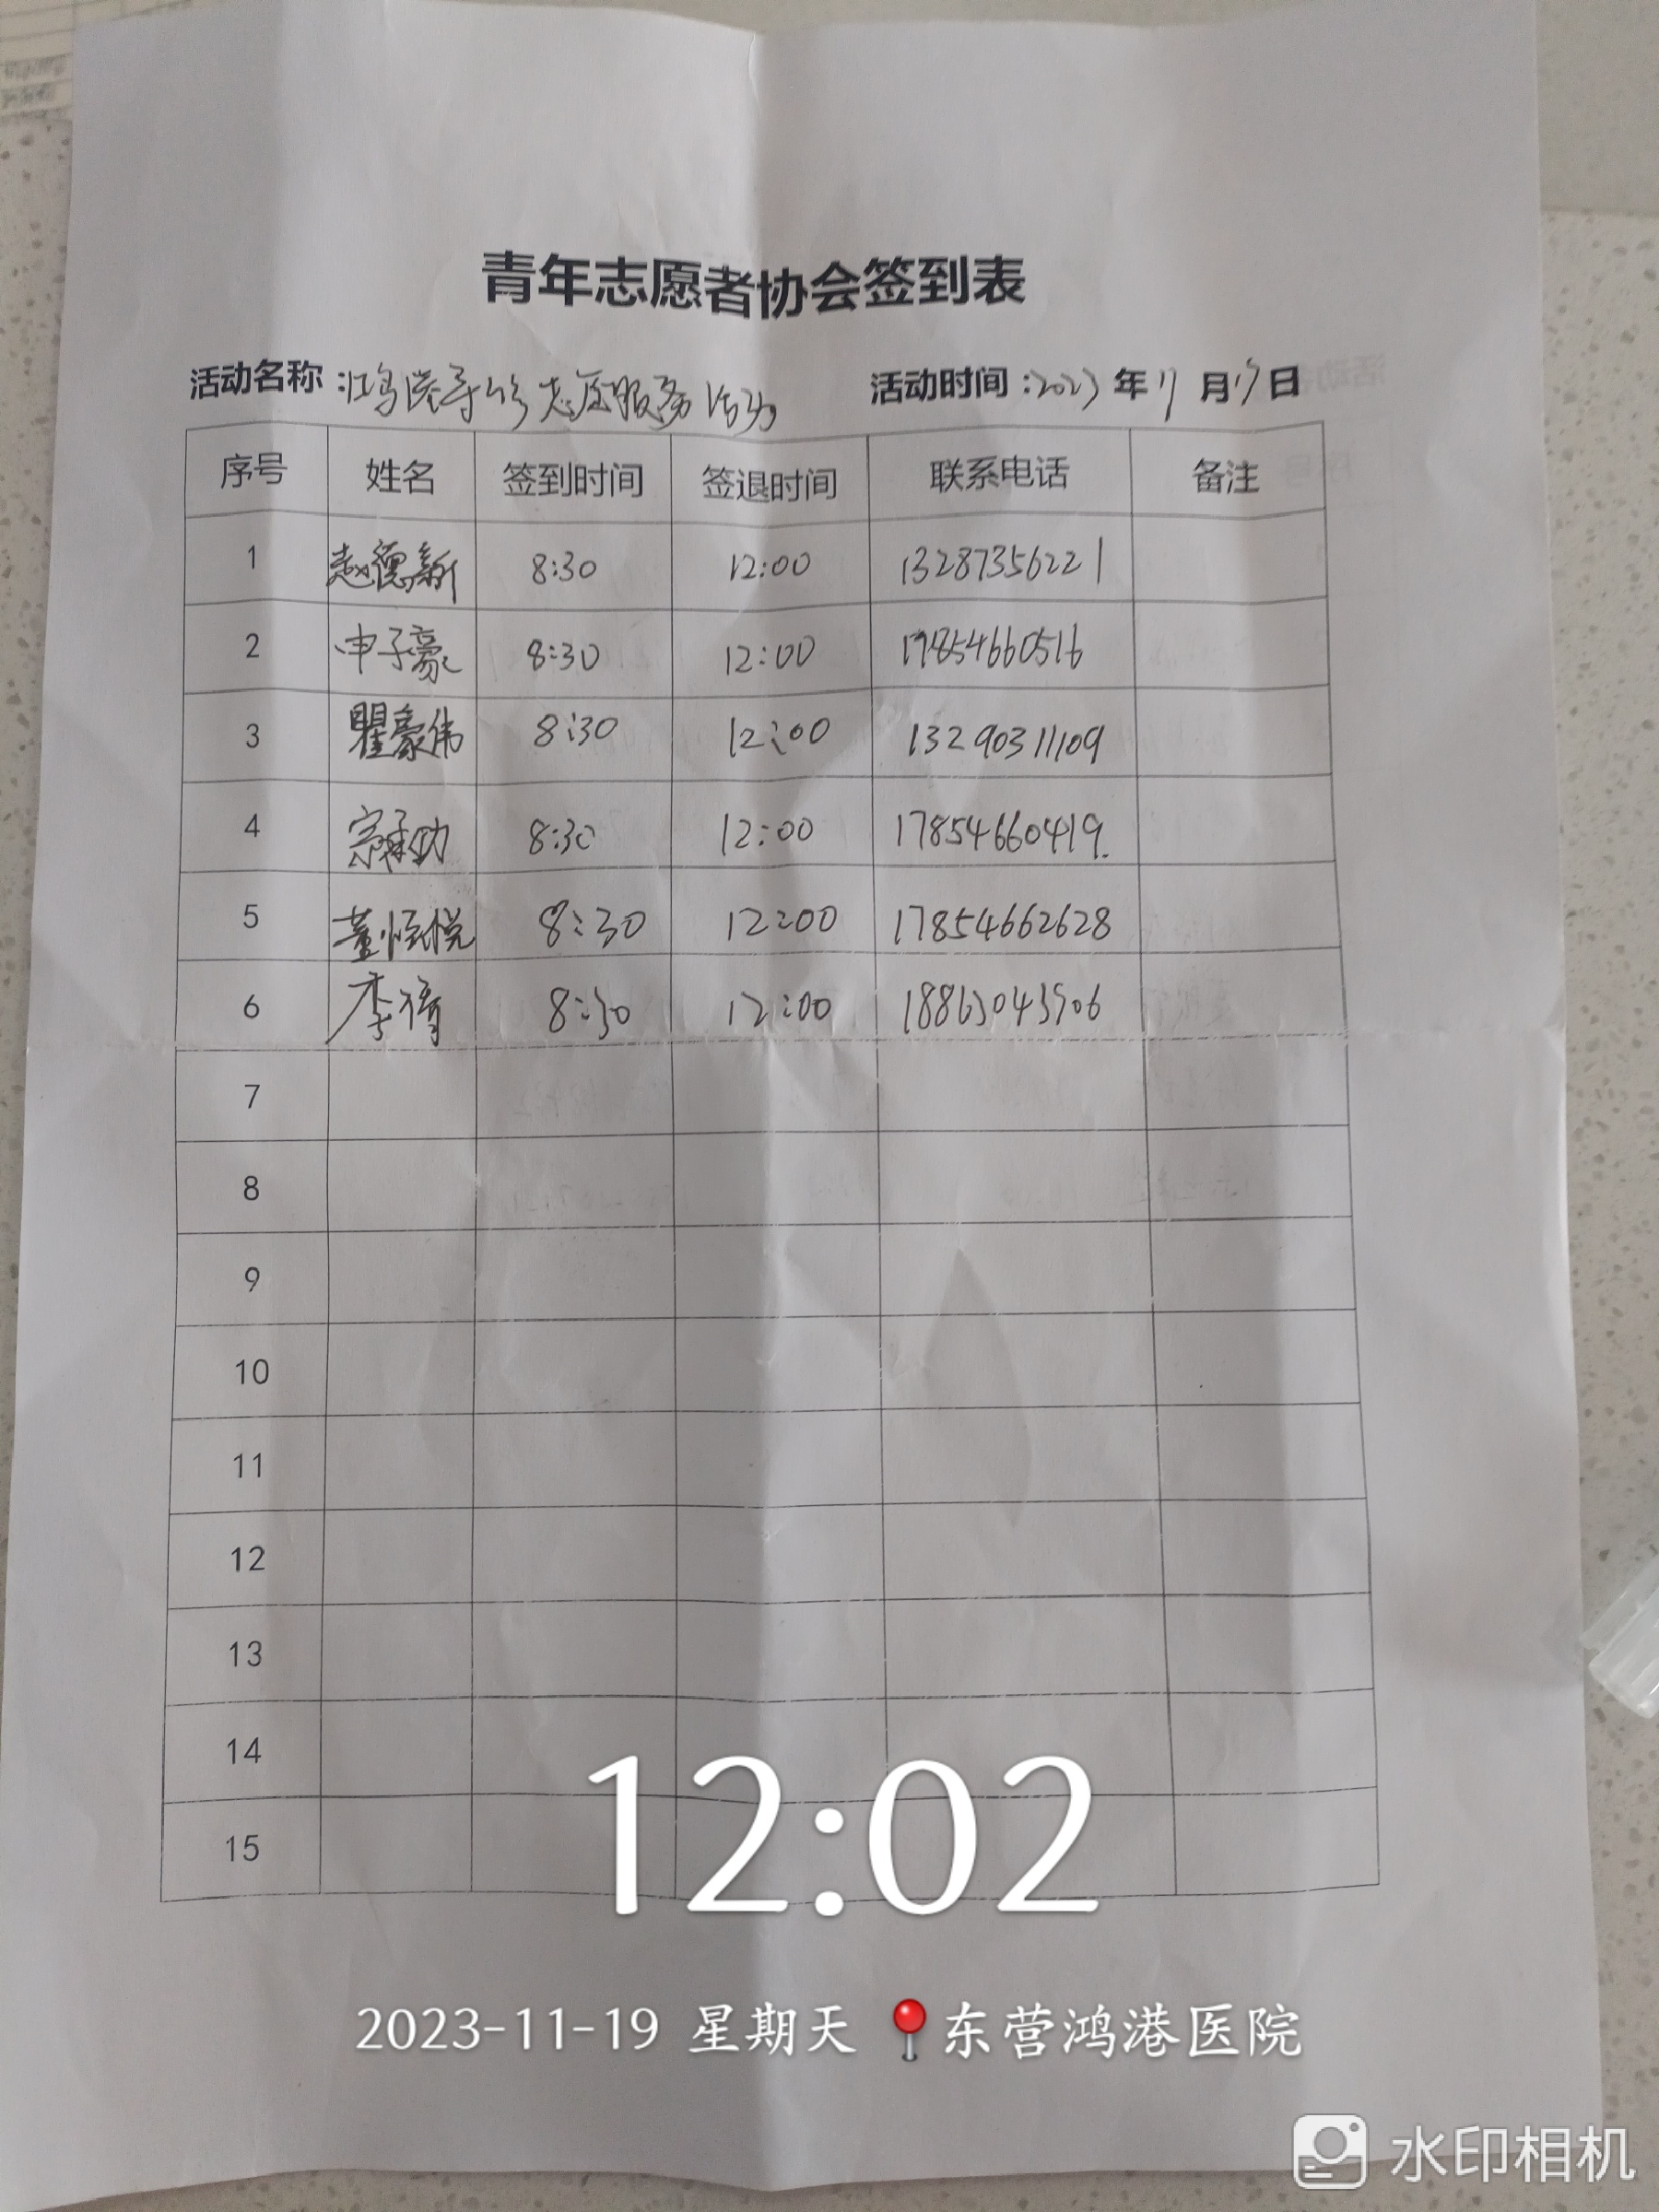 青年志愿者协会签到表
活动名称:鸿港导诊志愿服务活动 活动时间:2023年11月19日
序号 姓名 签到时间 签退时间 联系电话 备注
1 赵德新 8:30 12:00 13287356221
2 申子豪 8:30 12:00 17854660516
3 瞿豪伟 8:30 12:00 13290311109
4 宗承勋 8:30 12:00 17854660419.
5 董恒悦 8:30 12:00 17854662628
6 李 8:30 12:00
7
8
9
10
11
12
13
14
15
12:02
2023-11-19 星期天 东营鸿港医院
水印相机